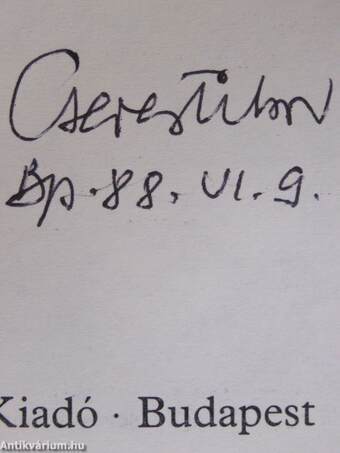 Cseres Tibor
Bp. 88. VI. 9.
Kiadó · Budapest
Antikvárium.hu